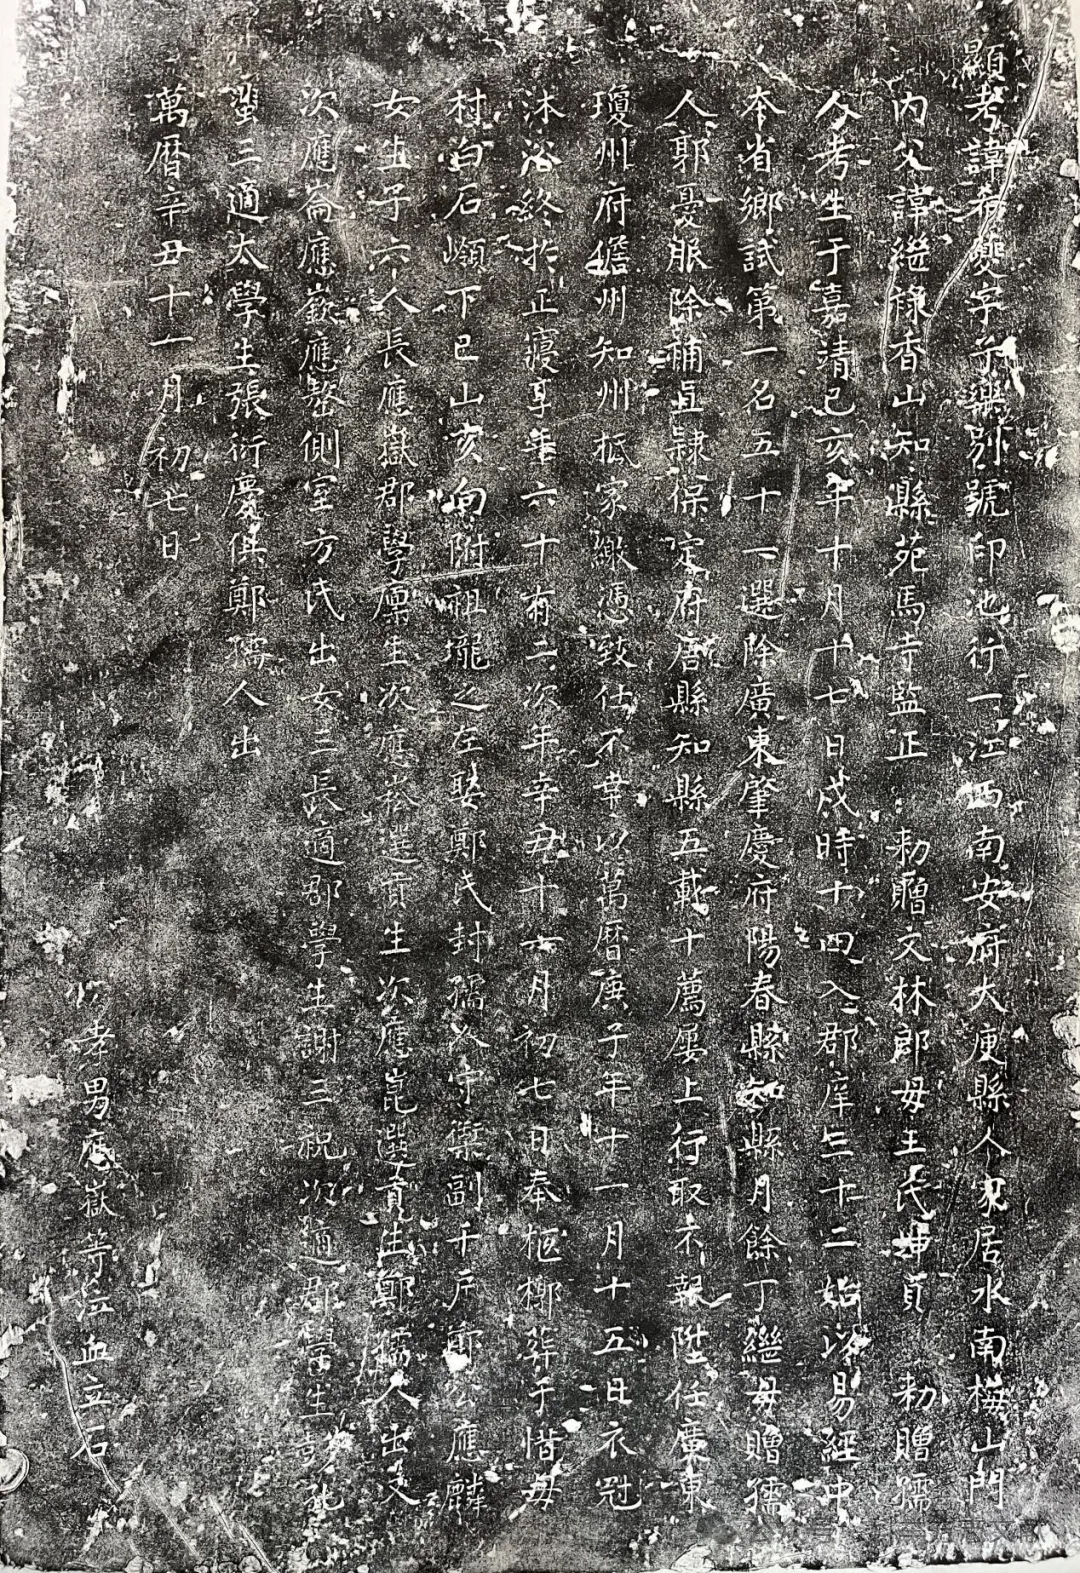 顯考諱希變字子樂別號印池行一江西南安府大庾縣人家居水南梅山門
內父諱繼祿香山知縣苑馬寺監正 勅贈文林郎母王氏坤貞 勅贈孺
人考生于嘉靖己亥年十月十七日戌時十四入郡庠三十二始以易經中
本省鄉試第一名五十一選除廣東肇慶府陽春縣知縣月餘丁繼母贈孺
人郭憂服除補直隸保定府唐縣知縣五載十薦屢上行取不報陞任廣東
瓊州府儋州知州抵家繳憑致仕不葉以萬曆庚子年十一月十五日衣冠
沐浴終於正寢享年六十有二次年辛丑十一月初七日奉柩槨葬于惜母
村白石嶺下巳山亥向附祖壠之左娶鄭氏封孺人守禦副千戶鄭公應麟
女生子六人長應嶽郡學廩生次應崧選貢生次應崑選貢生鄭孺人出又
次應崙應嶔應嶅側室方氏出女三長適郡學生謝三祝次適郡學生彭
蜚三適太學生張衍慶俱鄭孺人出
萬曆辛丑十一月初七日
孝男應嶽等泣血立石